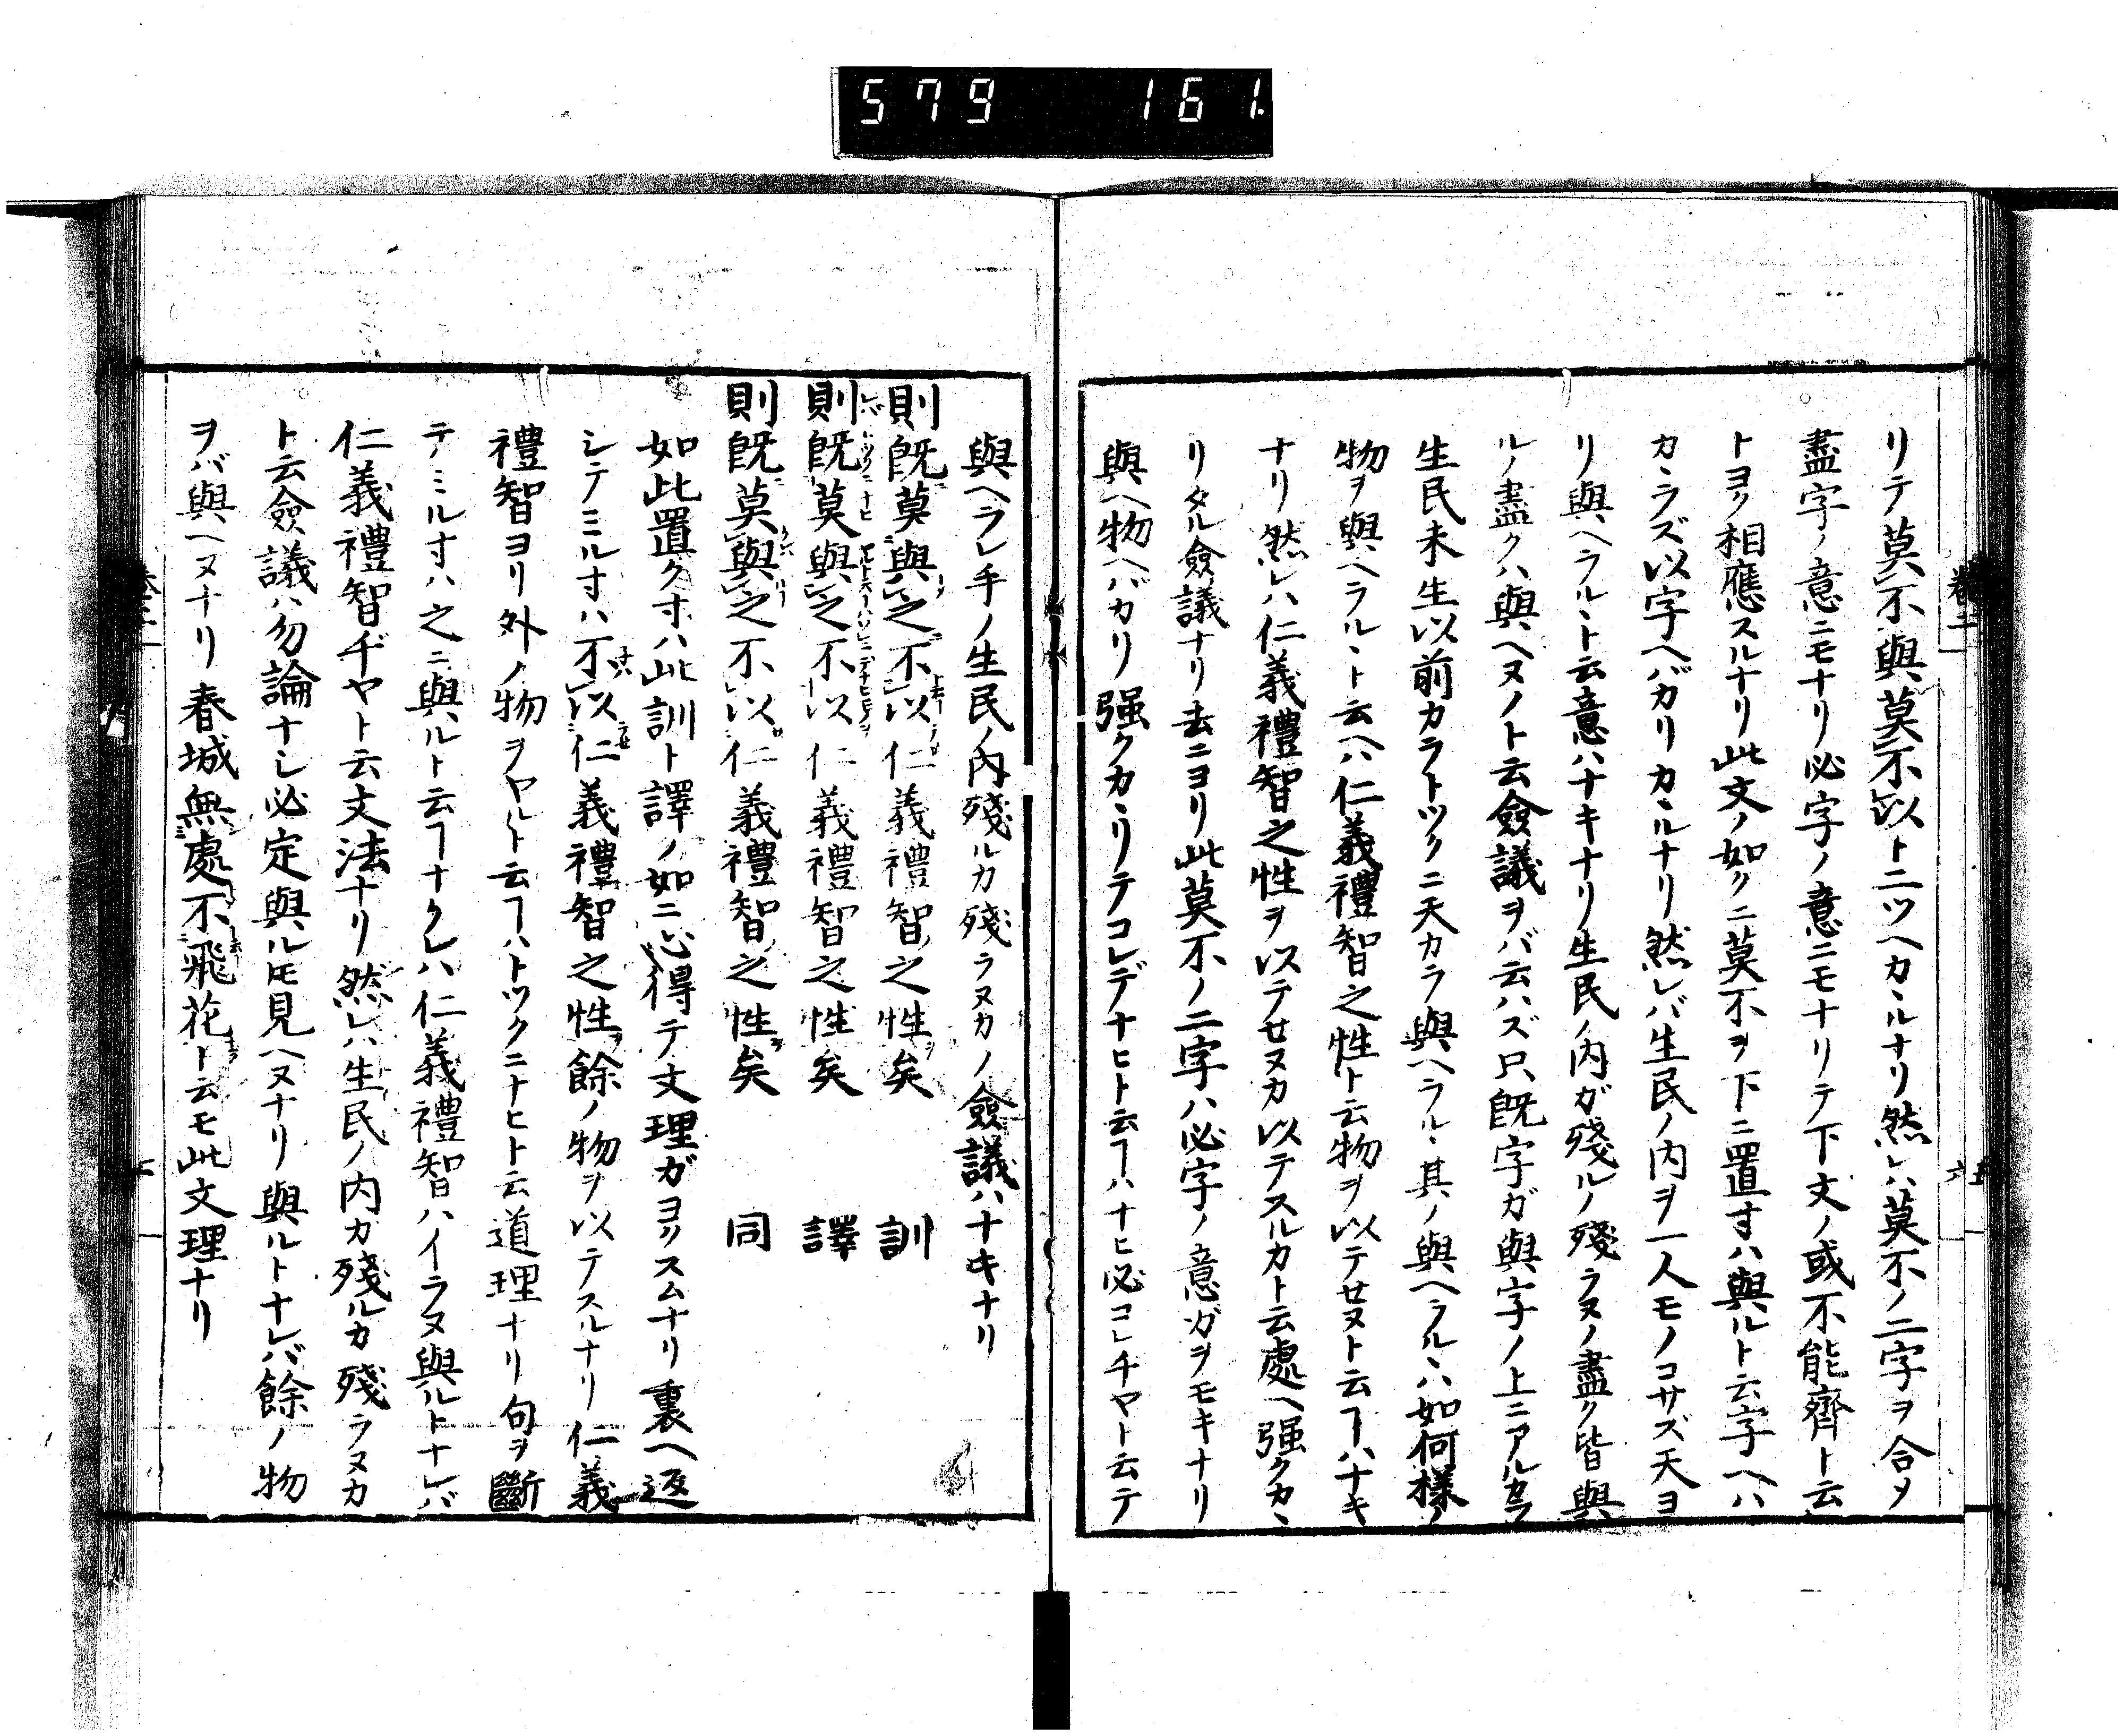 579 161
リテ莫不與莫不以ト二ツヘカヽルナリ然レハ莫不ノ二字ヲ合メ
盡字ノ意ニモナリ必字ノ意ニモナリテ下文ノ或不能齊ト云
トヨク相應スルナリ此文ノ如クニ莫不ヲ下ニ置寸ハ與ルト云字ヘハ
カヽラズ以字ヘバカリカヽルナリ然レバ生民ノ内ヲ一人モノコサズ天ヨ
リ與ヘラルヽト云意ハナキナリ生民ノ内ガ殘ルノ殘ラヌノ盡ク皆與
ルノ盡クハ與ヘヌノト云僉議ヲバ云ハズ只既字ガ與字ノ上ニアルカラ
生民未生以前カラトツクニ天カラ與ヘラルヽ其ノ與ヘラルヽハ如何様ノ
物ヲ與ヘラルヽト云ヘハ仁義禮智之性ト云物ヲ以テせヌト云ヿハナキ
ナリ然レハ仁義禮智之性ヲ以テせヌカ以テスルカト云處ヘ强クカヽ
リタル僉議ナリ去ニヨリ此莫不ノ二字ハ必字ノ意ガヲモキナリ
與ヘ物ヘバカリ强クカヽリテコレデナヒト云ヿハナヒ必コレチヤト云テ
卷二
與ヘラレ手ノ生民ノ内殘ルカ殘ラヌカノ僉議ハナキナリ
則既莫與之不以仁義禮智之性矣 訓
則既莫與之不以仁義禮智之性矣 譯
則既莫與之不以仁義禮智之性矣 同
如此置ク寸ハ此訓ト譯ノ如ニ心得テ文理ガヨクスムナリ裏ヘ返
シテミル寸ハ不以仁義禮智之性餘ノ物ヲ以テスルナリ仁義
禮智ヨリ外ノ物ヲヤルト云ヿハトツクニナヒト云道理ナリ句ヲ斷
テミル寸ハ之ニ與ルト云ヿナクレハ仁義禮智ハイラヌ與ルトナレバ
仁義禮智ヂヤト云文法ナリ然レハ生民ノ内カ殘ルカ殘ラヌカ
ト云僉議ハ勿論ナシ必定與ルトモ見ヘヌナリ與ルトナレバ餘ノ物
ヲバ與ヘヌナリ春城無處不飛花ト云モ此文理ナリ